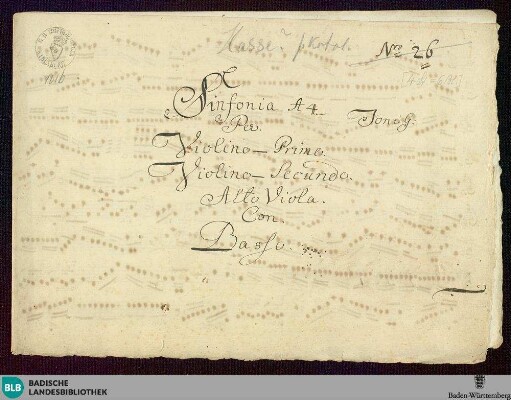 Hasse?
Nro 26
Sinfonia A 4.
Per Tono G.
Violino—Primo.
Violino—Secundo.
Alto Viola.
Con
Basso
BLB BADISCHE
LANDESBIBLIOTHEK
Baden-Württemberg